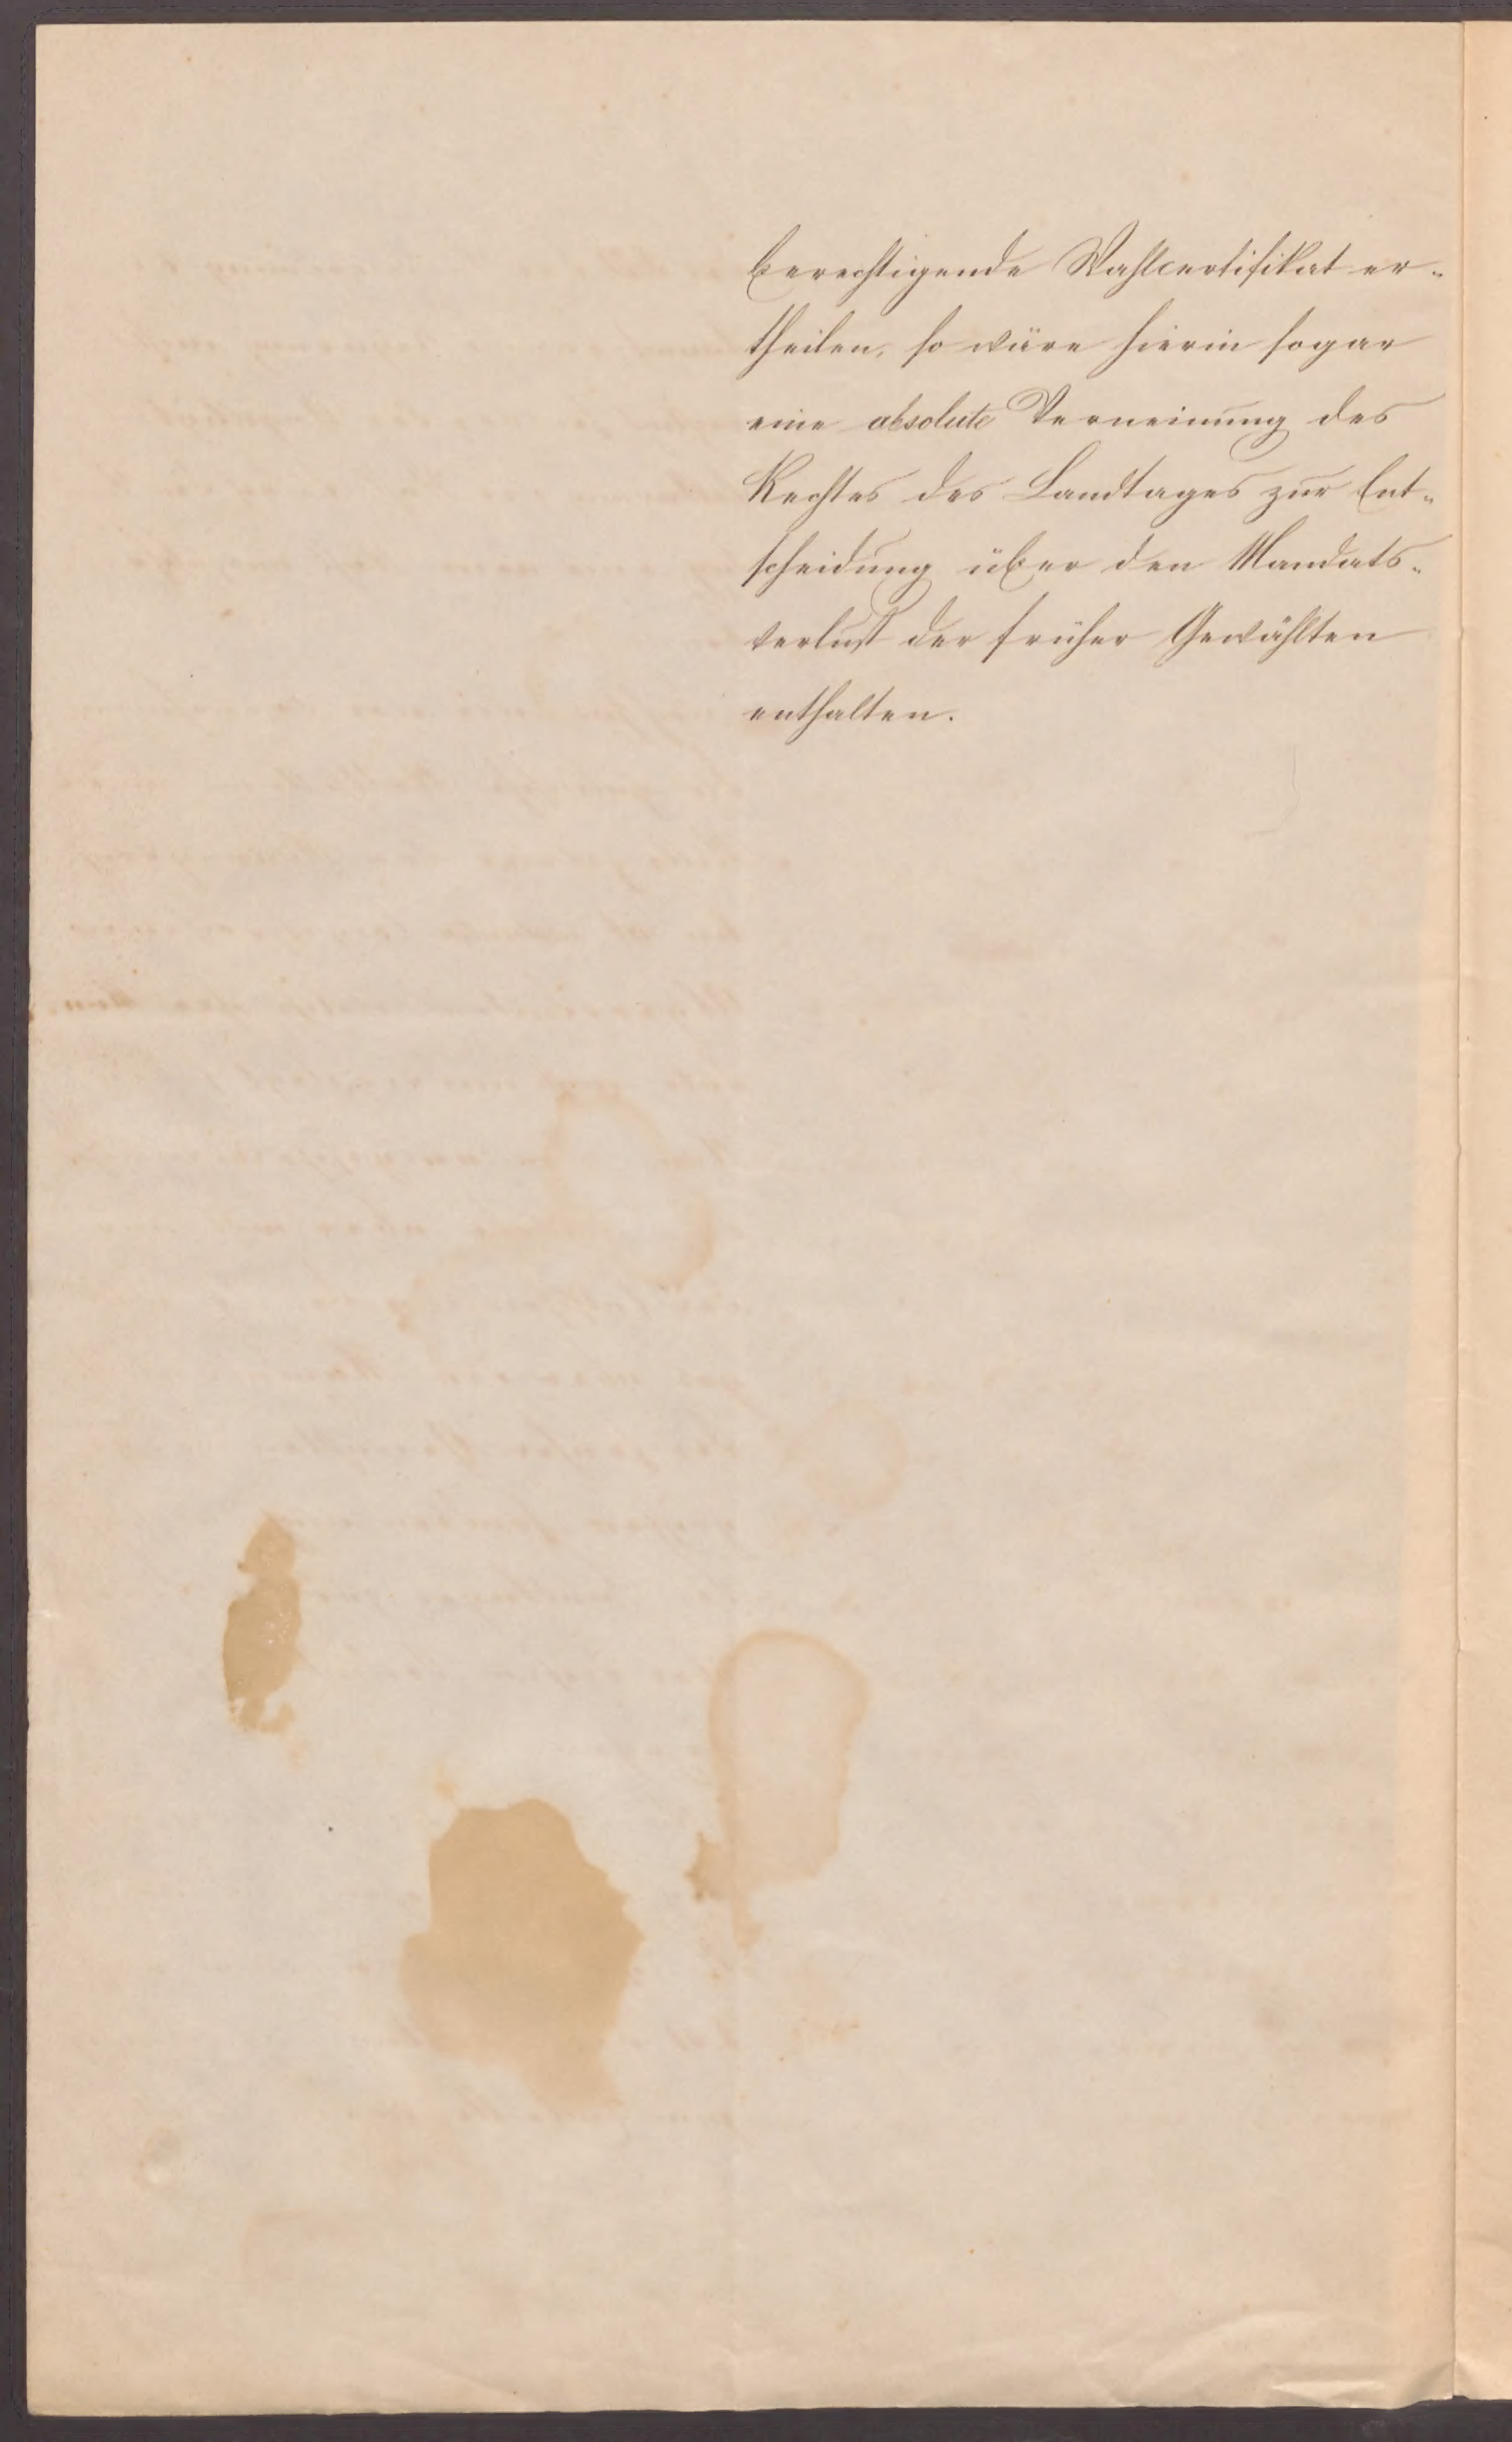 berechtigende Wahlcertifikat er-
theilen, so wäre hierin sogar
eine absolute Verneinung des
Rechtes des Landtages zur Ent-
scheidung über den Mandats-
verlust der früher Gewählten
enthalten.